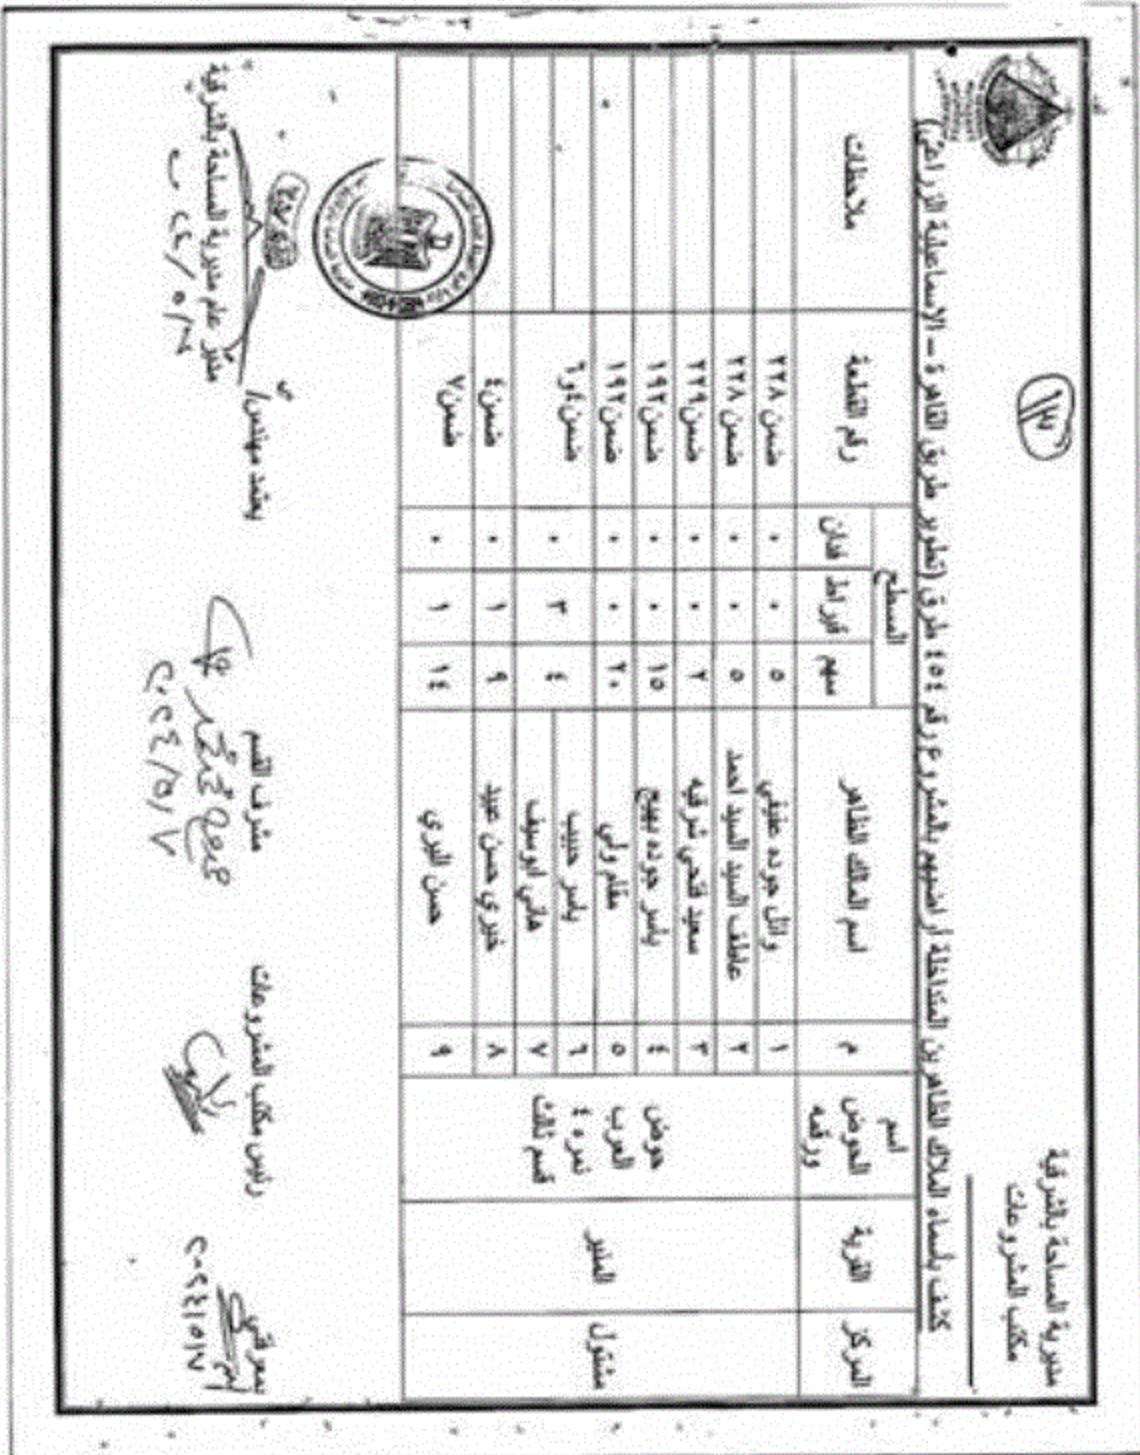 مديرية المساحة بالشرقية
مكتب المشروعات
١٣
كشف بأسماء الملاك الظاهرين المتداخلة أراضيهم بالمشروع رقم ٤٥٤ طرق (تطوير طريق القاهرة – الاسماعيلية الزراعي)
المركز القرية اسم الحوض ورقمه م اسم المالك الظاهر السطح رقم القطعة ملاحظات
سهم قيراط فدان
مشتول المنير حوض العرب نمره ٤ قسم ثالث
١ وائل جوده عفيفي ٥ ٠ ٠ ضمن ٢٢٨
٢ عاطف السيد السيد احمد ٥ ٠ ٠ ضمن ٢٢٨
٣ سعيد فتحي شرفيه ٢ ٠ ٠ ضمن ٢٢٩
٤ ياسر جوده بهيج ١٥ ٠ ٠ ضمن ١٩٢
٥ مقام ولي ٢٠ ٠ ٠ ضمن ١٩٢
٦ ياسر حبيب ٤ ٣ ٠ ضمن ٤ و ٦
٧ هاني ابوسيف
٨ خيري حسن عبيد ٩ ١ ٠ ضمن ٤
٩ حسن البري ١٤ ١ ٠ ضمن ٧
بمعرفتي رئيس مكتب المشروعات مشرف القسم يعتمد مهندس/
مدير عام مديرية المساحة بالشرقية
٢٠٢٤/٥/٧ ٢٠٢٤/٥/٧